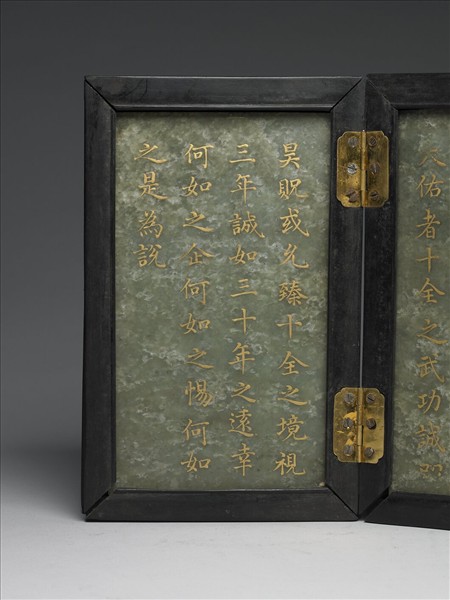 天佑者十全之武功誠如
昊貺或允臻十全之境視
三年誠如三十年之遠幸
何如之企何如之惕何如
之是為說